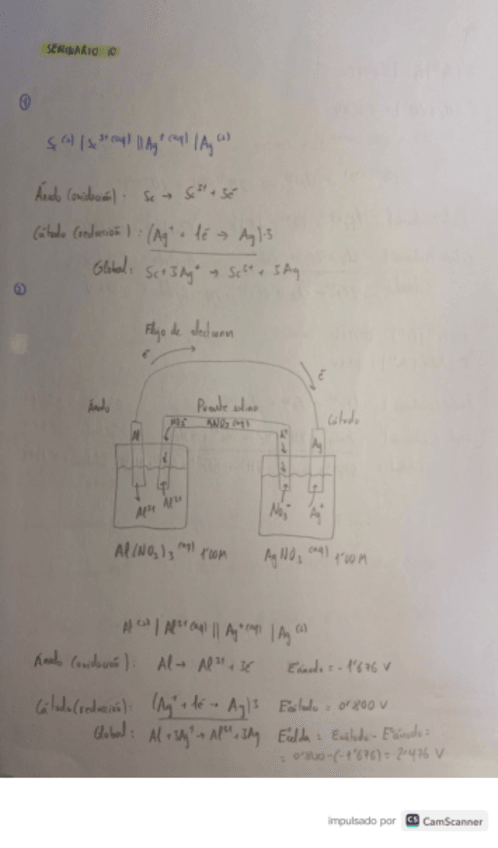 SEMINARIO 10
①
Sc (s) | Sc³⁺ (aq) || Ag⁺ (aq) | Ag (s)
Ánodo (oxidación): Sc → Sc³⁺ + 3é
Cátodo (reducción): (Ag⁺ + 1é → Ag)·3
Global: Sc + 3Ag⁺ → Sc³⁺ + 3Ag
②
Flujo de electrones
é é
Ánodo Puente salino Cátodo
Al NO₃⁻ KNO₃ (aq) K⁺ Ag
Al³⁺ Al³⁺ NO₃⁻ Ag⁺
Al(NO₃)₃ (aq) 1'00M AgNO₃ (aq) 1'00M
Al (s) | Al³⁺ (aq) || Ag⁺ (aq) | Ag (s)
Ánodo (oxidación): Al → Al³⁺ + 3é Eánodo = -1'676 V
Cátodo (reducción): (Ag⁺ + 1é → Ag)3 Ecátodo = 0'800 V
Global: Al + 3Ag⁺ → Al³⁺ + 3Ag Ecelda = Ecátodo - Eánodo =
= 0'800 - (-1'676) = 2'476 V
impulsado por CS CamScanner